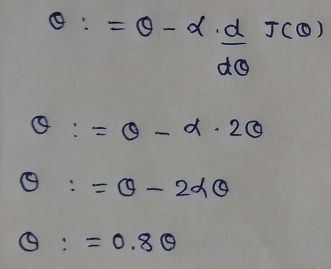 θ := θ - α · d/dθ J(θ)
θ := θ - α · 2θ
θ := θ - 2αθ
θ := 0.8θ